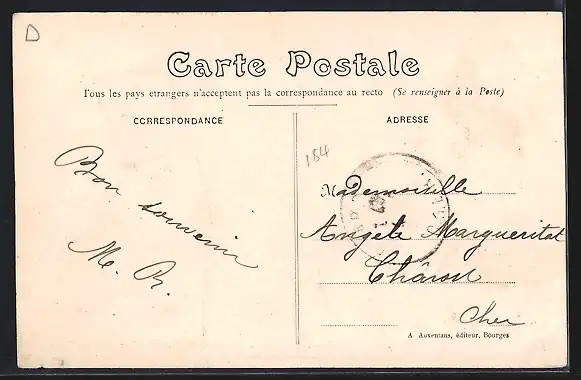 D
Carte Postale
Tous les pays etrangers n'acceptent pas la correspondance au recto (Se renseigner à la Poste)
CORRESPONDANCE
ADRESSE
184
Bon souvenir
M. R.
Mademoiselle
Angèle Margueritat
Chârost
Cher
A Auxenfans, éditeur, Bourges